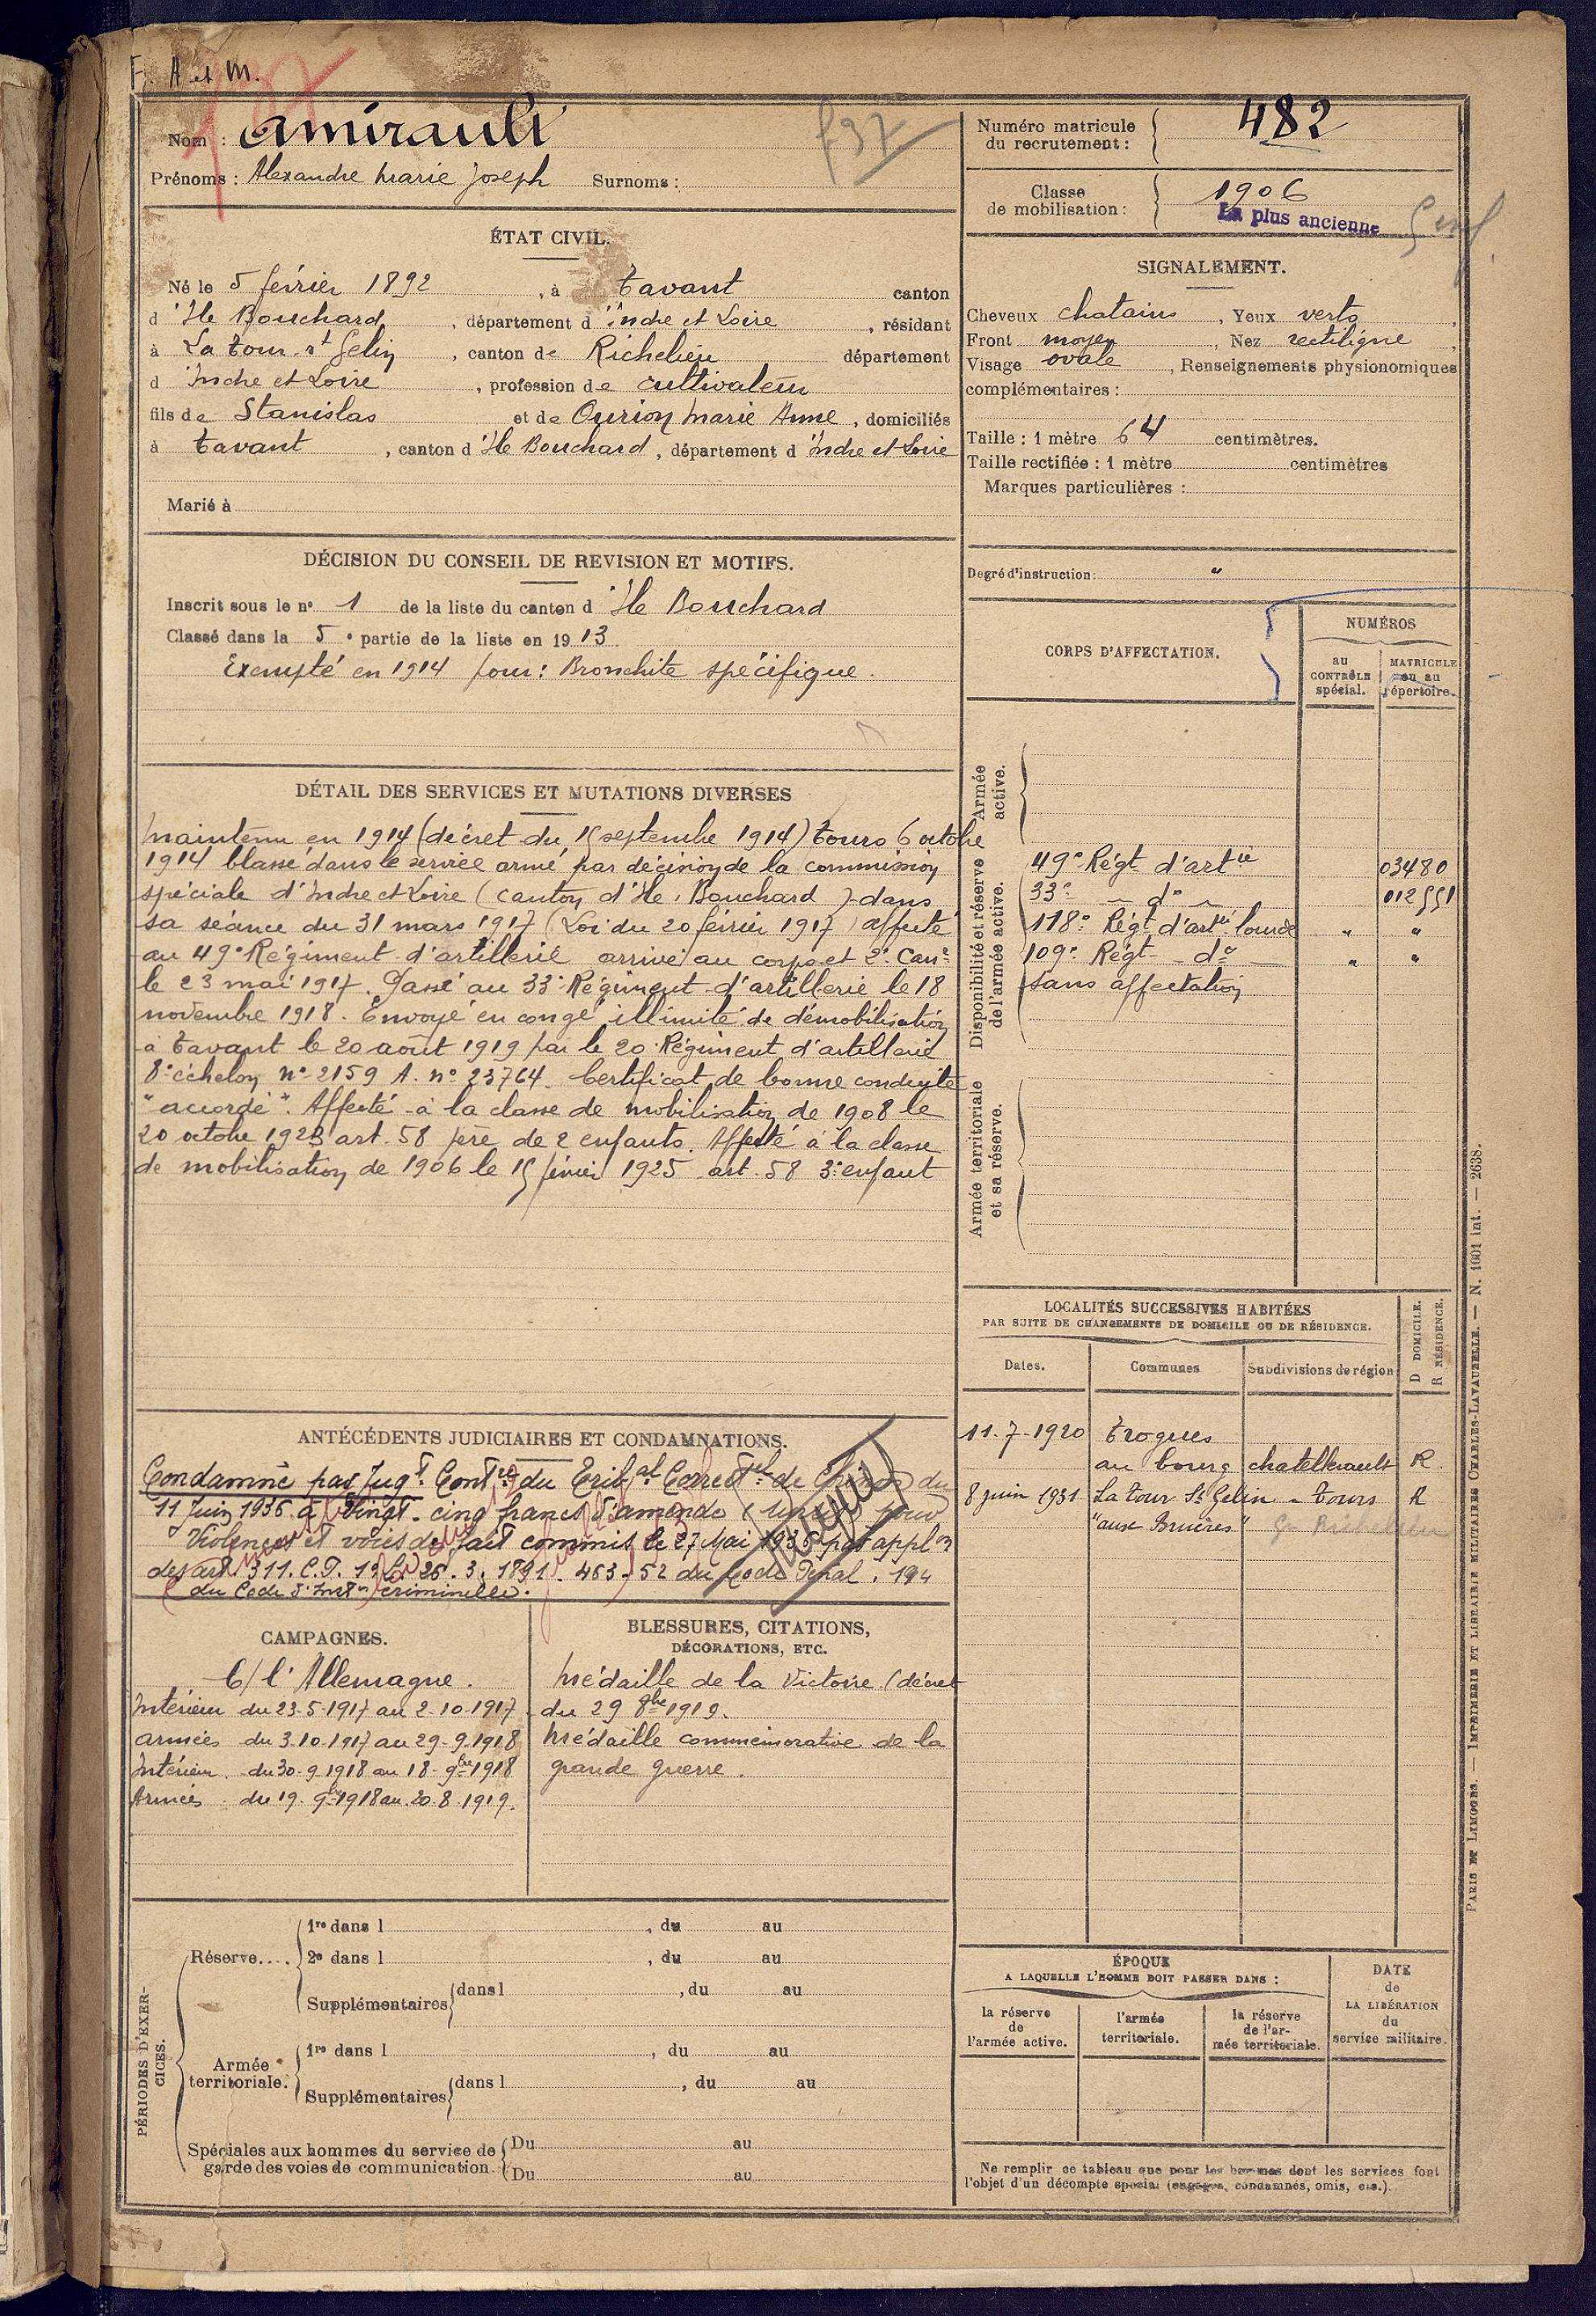 F. A et M.
Nom : Amirault
f 37
Prénoms : Alexandre Marie Joseph Surnoms :
Numéro matricule du recrutement : 482
Classe de mobilisation : 1906
La plus ancienne
ÉTAT CIVIL.
Né le 5 février 1892, à Tavant canton
d'Ile Bouchard, département d'Indre et Loire, résidant
à La Tour St Gelin, canton de Richelieu département
d'Indre et Loire, profession de cultivateur
fils de Stanislas et de Ourion Marie Anne, domiciliés
à Tavant, canton d'Ile Bouchard, département d'Indre et Loire
Marié à
SIGNALEMENT.
Cheveux chatains, Yeux verts,
Front moyen, Nez rectiligne,
Visage ovale, Renseignements physionomiques
complémentaires :
Taille : 1 mètre 64 centimètres.
Taille rectifiée : 1 mètre centimètres
Marques particulières :
Degré d'instruction : "
DÉCISION DU CONSEIL DE REVISION ET MOTIFS.
Inscrit sous le n° 1 de la liste du canton d'Ile Bouchard
Classé dans la 5e partie de la liste en 1913
Exempté en 1914 pour : Bronchite spécifique.
DÉTAIL DES SERVICES ET MUTATIONS DIVERSES
Maintenu en 1914 (décret du 15 septembre 1914) Tours 6 octobre
1914 Classé dans le service armé par décision de la commission
spéciale d'Indre et Loire (canton d'Ile Bouchard) dans
sa séance du 31 mars 1917 (Loi du 20 février 1917) affecté
au 49e Régiment d'artillerie arrivé au corps et 2e Canr
le 23 mai 1917. Passé au 33e Régiment d'artillerie le 18
novembre 1918. Envoyé en congé illimité de démobilisation
à Tavant le 20 août 1919 par le 20e Régiment d'artillerie
8e échelon n° 2159 A. n° 23764. Certificat de bonne conduite
"accordé". Affecté à la classe de mobilisation de 1908 le
20 octobre 1923 art. 58 père de 2 enfants. Affecté à la classe
de mobilisation de 1906 le 15 février 1925 art. 58 3e enfant
CORPS D'AFFECTATION.
NUMÉROS
au CONTRÔLE spécial.
MATRICULE ou au répertoire.
Armée active.
Disponibilité et réserve de l'armée active.
49e Régt d'artie 03480
33e - do - 012551
118e Régt d'artie lourde " "
109e Régt - do - " "
Sans affectation
Armée territoriale et sa réserve.
LOCALITÉS SUCCESSIVES HABITÉES
PAR SUITE DE CHANGEMENTS DE DOMICILE OU DE RÉSIDENCE.
Dates. Communes Subdivisions de région D DOMICILE. R RÉSIDENCE.
11-7-1920 Trogues
au bourg chatellerault R.
8 juin 1931 La Tour St Gelin - Tours R
"aux Bruères"
ANTÉCÉDENTS JUDICIAIRES ET CONDAMNATIONS.
Condamné par Jugt Contre du Tribal Correctel de Chinon du
11 Juin 1936 à Vingt-cinq francs d'amende pour
Violences et voies de fait commis le 27 Mai 1936 par applon
des art 311. C.P. 1e Loi 26.3.1891. 463-52 du Code Pénal. 194
du Code d'Instn criminelle.
CAMPAGNES.
C/ l'Allemagne.
Intérieur du 23-5-1917 au 2-10-1917
armées du 3.10.1917 au 29-9-1918
Intérieur du 30-9-1918 au 18-9bre 1918
Armées du 19-9bre 1918 au 20-8-1919.
BLESSURES, CITATIONS,
DÉCORATIONS, ETC.
Médaille de la Victoire (décret
du 29 8bre 1919.
Médaille commémorative de la
grande guerre.
PÉRIODES D'EXERCICES.
Réserve.... 1re dans l , du au
2e dans l , du au
Supplémentaires dans l , du au
Armée territoriale. 1re dans l , du au
Supplémentaires dans l , du au
Spéciales aux hommes du service de garde des voies de communication. Du au
Du au
ÉPOQUE
A LAQUELLE L'HOMME DOIT PASSER DANS :
la réserve de l'armée active.
l'armée territoriale.
la réserve de l'armée territoriale.
DATE de LA LIBÉRATION du service militaire.
Ne remplir ce tableau que pour les hommes dont les services font
l'objet d'un décompte spécial (engagés, condamnés, omis, etc.).
PARIS ET LIMOGES. — IMPRIMERIE ET LIBRAIRIE MILITAIRES CHARLES-LAVAUZELLE. — N. 1001 int. — 2638.